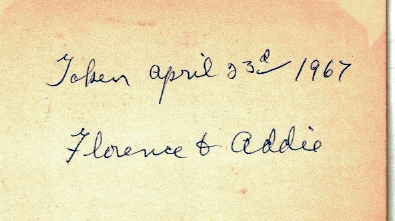 Taken april 23d 1967
Florence & Addie